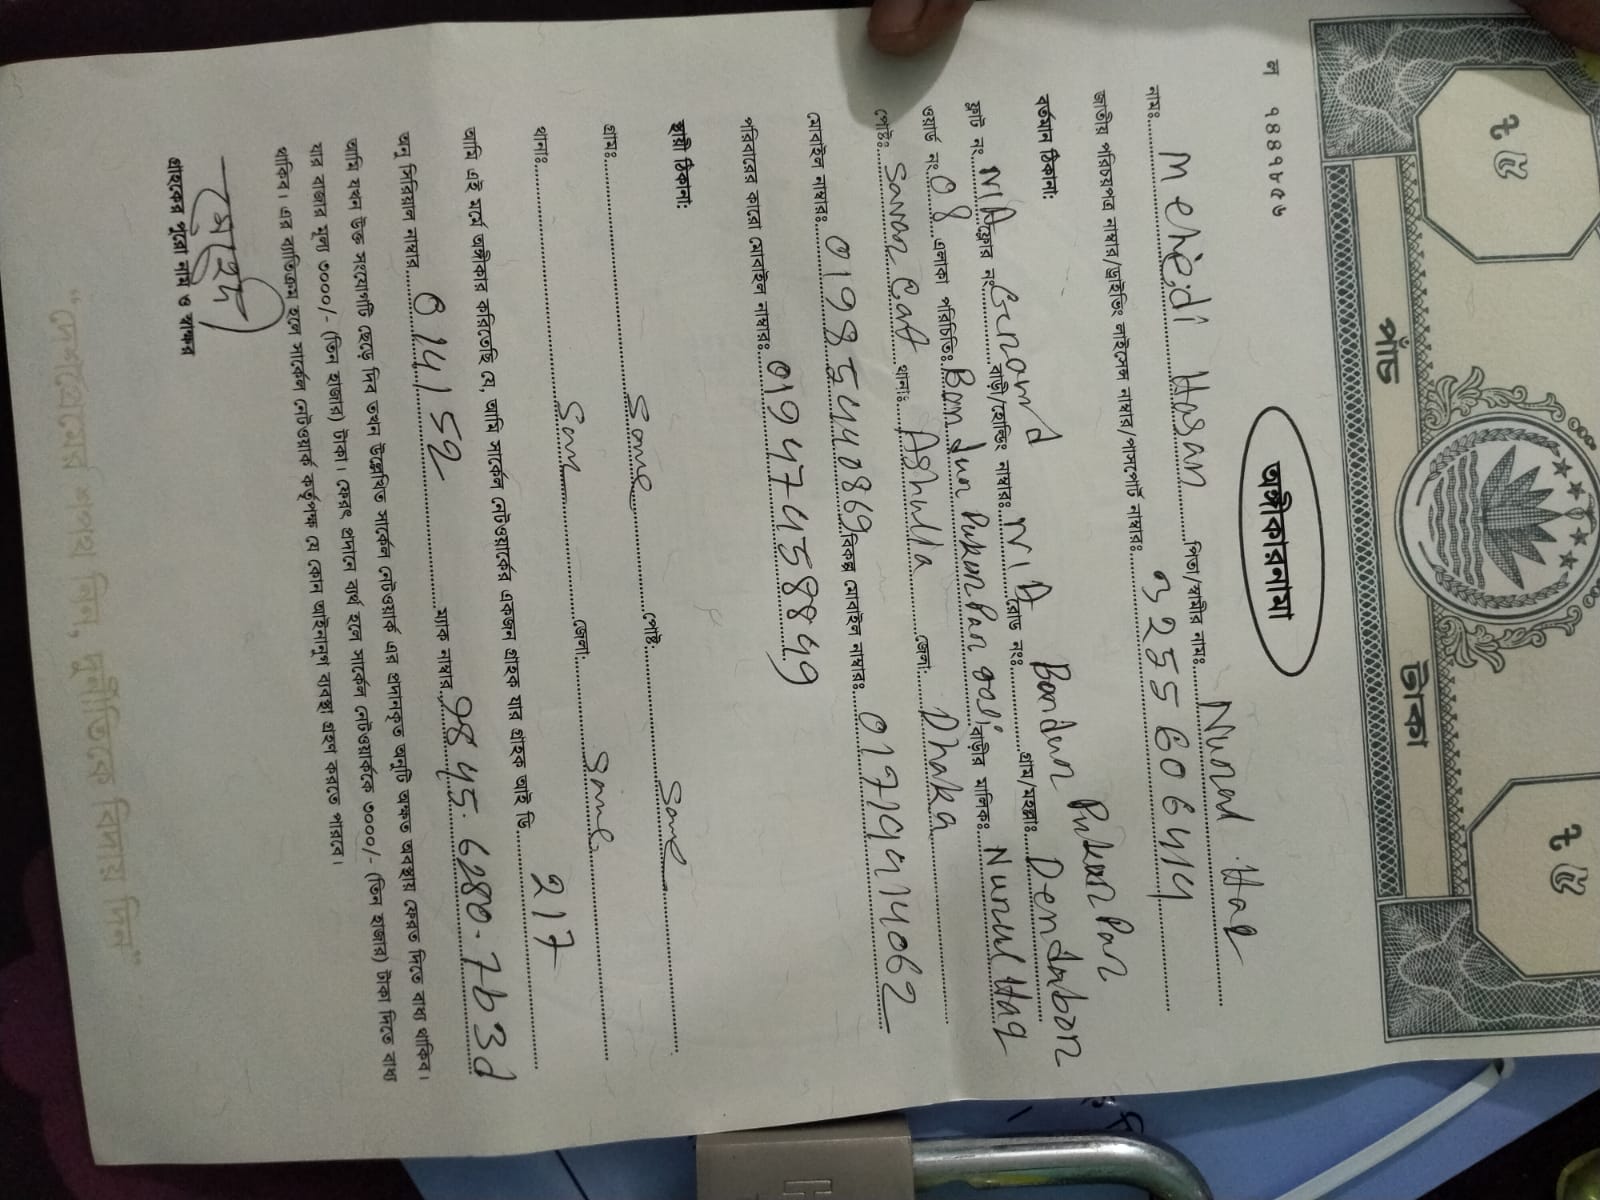 ৳ ৫ ৳ ৫
পাঁচ টাকা
ল ৭৪৪৭৮৫৬
অঙ্গীকারনামা
নামঃ Mehedi Hasan পিতা/স্বামীর নামঃ Nurul Haq
জাতীয় পরিচয়পত্র নাম্বার/ড্রাইভিং লাইসেন্স নাম্বার/পাসপোর্ট নাম্বারঃ 3255606414
বর্তমান ঠিকানা: Bandur Pukur Par
ফ্লাট নং N/A ফ্লোর নং Ground বাড়ী/হোল্ডিং নাম্বারঃ N/A রোড নংঃ গ্রাম/মহল্লাঃ Dendabor
ওয়ার্ড নং 08 এলাকা পরিচিতিঃ Pukur Par goli বাড়ীর মালিকঃ Nurul Haq
পোষ্টঃ Savar Cat থানাঃ Ashulia জেলা: Dhaka
মোবাইল নাম্বারঃ 01985440869 বিকল্প মোবাইল নাম্বারঃ
পরিবারের কারো মোবাইল নাম্বারঃ 01947458849
স্থায়ী ঠিকানা:
গ্রামঃ Same পোষ্ট: Same
থানাঃ Sam জেলা: Same
আমি এই মর্মে অঙ্গীকার করিতেছি যে, আমি সার্কেল নেটওয়ার্কের একজন গ্রাহক যার গ্রাহক আই ডি 217
অনু সিরিয়াল নাম্বার 014152 ম্যাক নাম্বার 9845.6280.7b3d
আমি যখন উক্ত সংযোগটি ছেড়ে দিব তখন উল্লেখিত সার্কেল নেটওয়ার্ক এর প্রদানকৃত অনুটি অক্ষত অবস্থায় ফেরত দিতে বাধ্য থাকিব।
যার বাজার মূল্য ৩০০০/- (তিন হাজার) টাকা। ফেরৎ প্রদানে ব্যর্থ হলে সার্কেল নেটওয়ার্ককে ৩০০০/- (তিন হাজার) টাকা দিতে বাধ্য
থাকিব। এর ব্যতিক্রম হলে সার্কেল নেটওয়ার্ক কর্তৃপক্ষ যে কোন আইনানুগ ব্যবস্থা গ্রহণ করতে পারবে।
মেহেদী
গ্রাহকের পুরো নাম ও স্বাক্ষর
"দেশপ্রেমের শপথ নিন, দুর্নীতিকে বিদায় দিন"